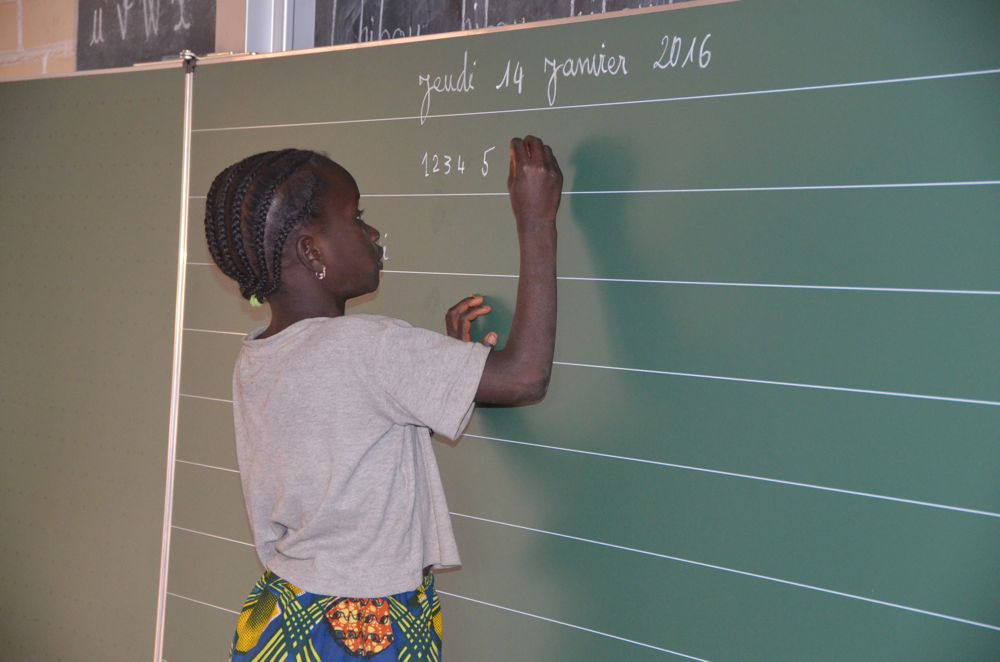 u v W X
hibou hibou
Jeudi 14 Janvier 2016
1 2 3 4 5
i